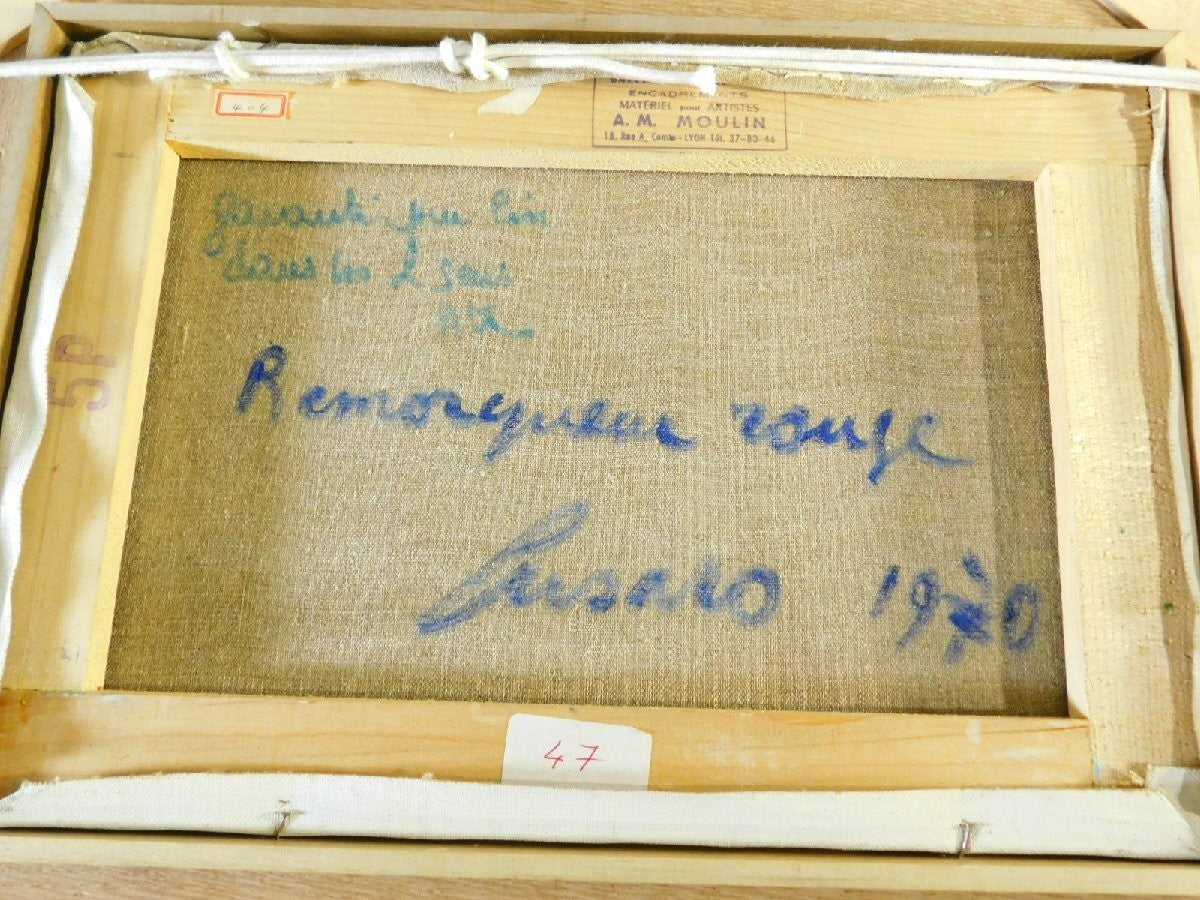 404
ENCADREMENTS
MATÉRIEL pour ARTISTES
A. M. MOULIN
18, Rue A. Comte - LYON Tél. 37-80-46
garanti pur lin
dans les 2 sens
5P
Remorqueur rouge
Fusaro 1970
47